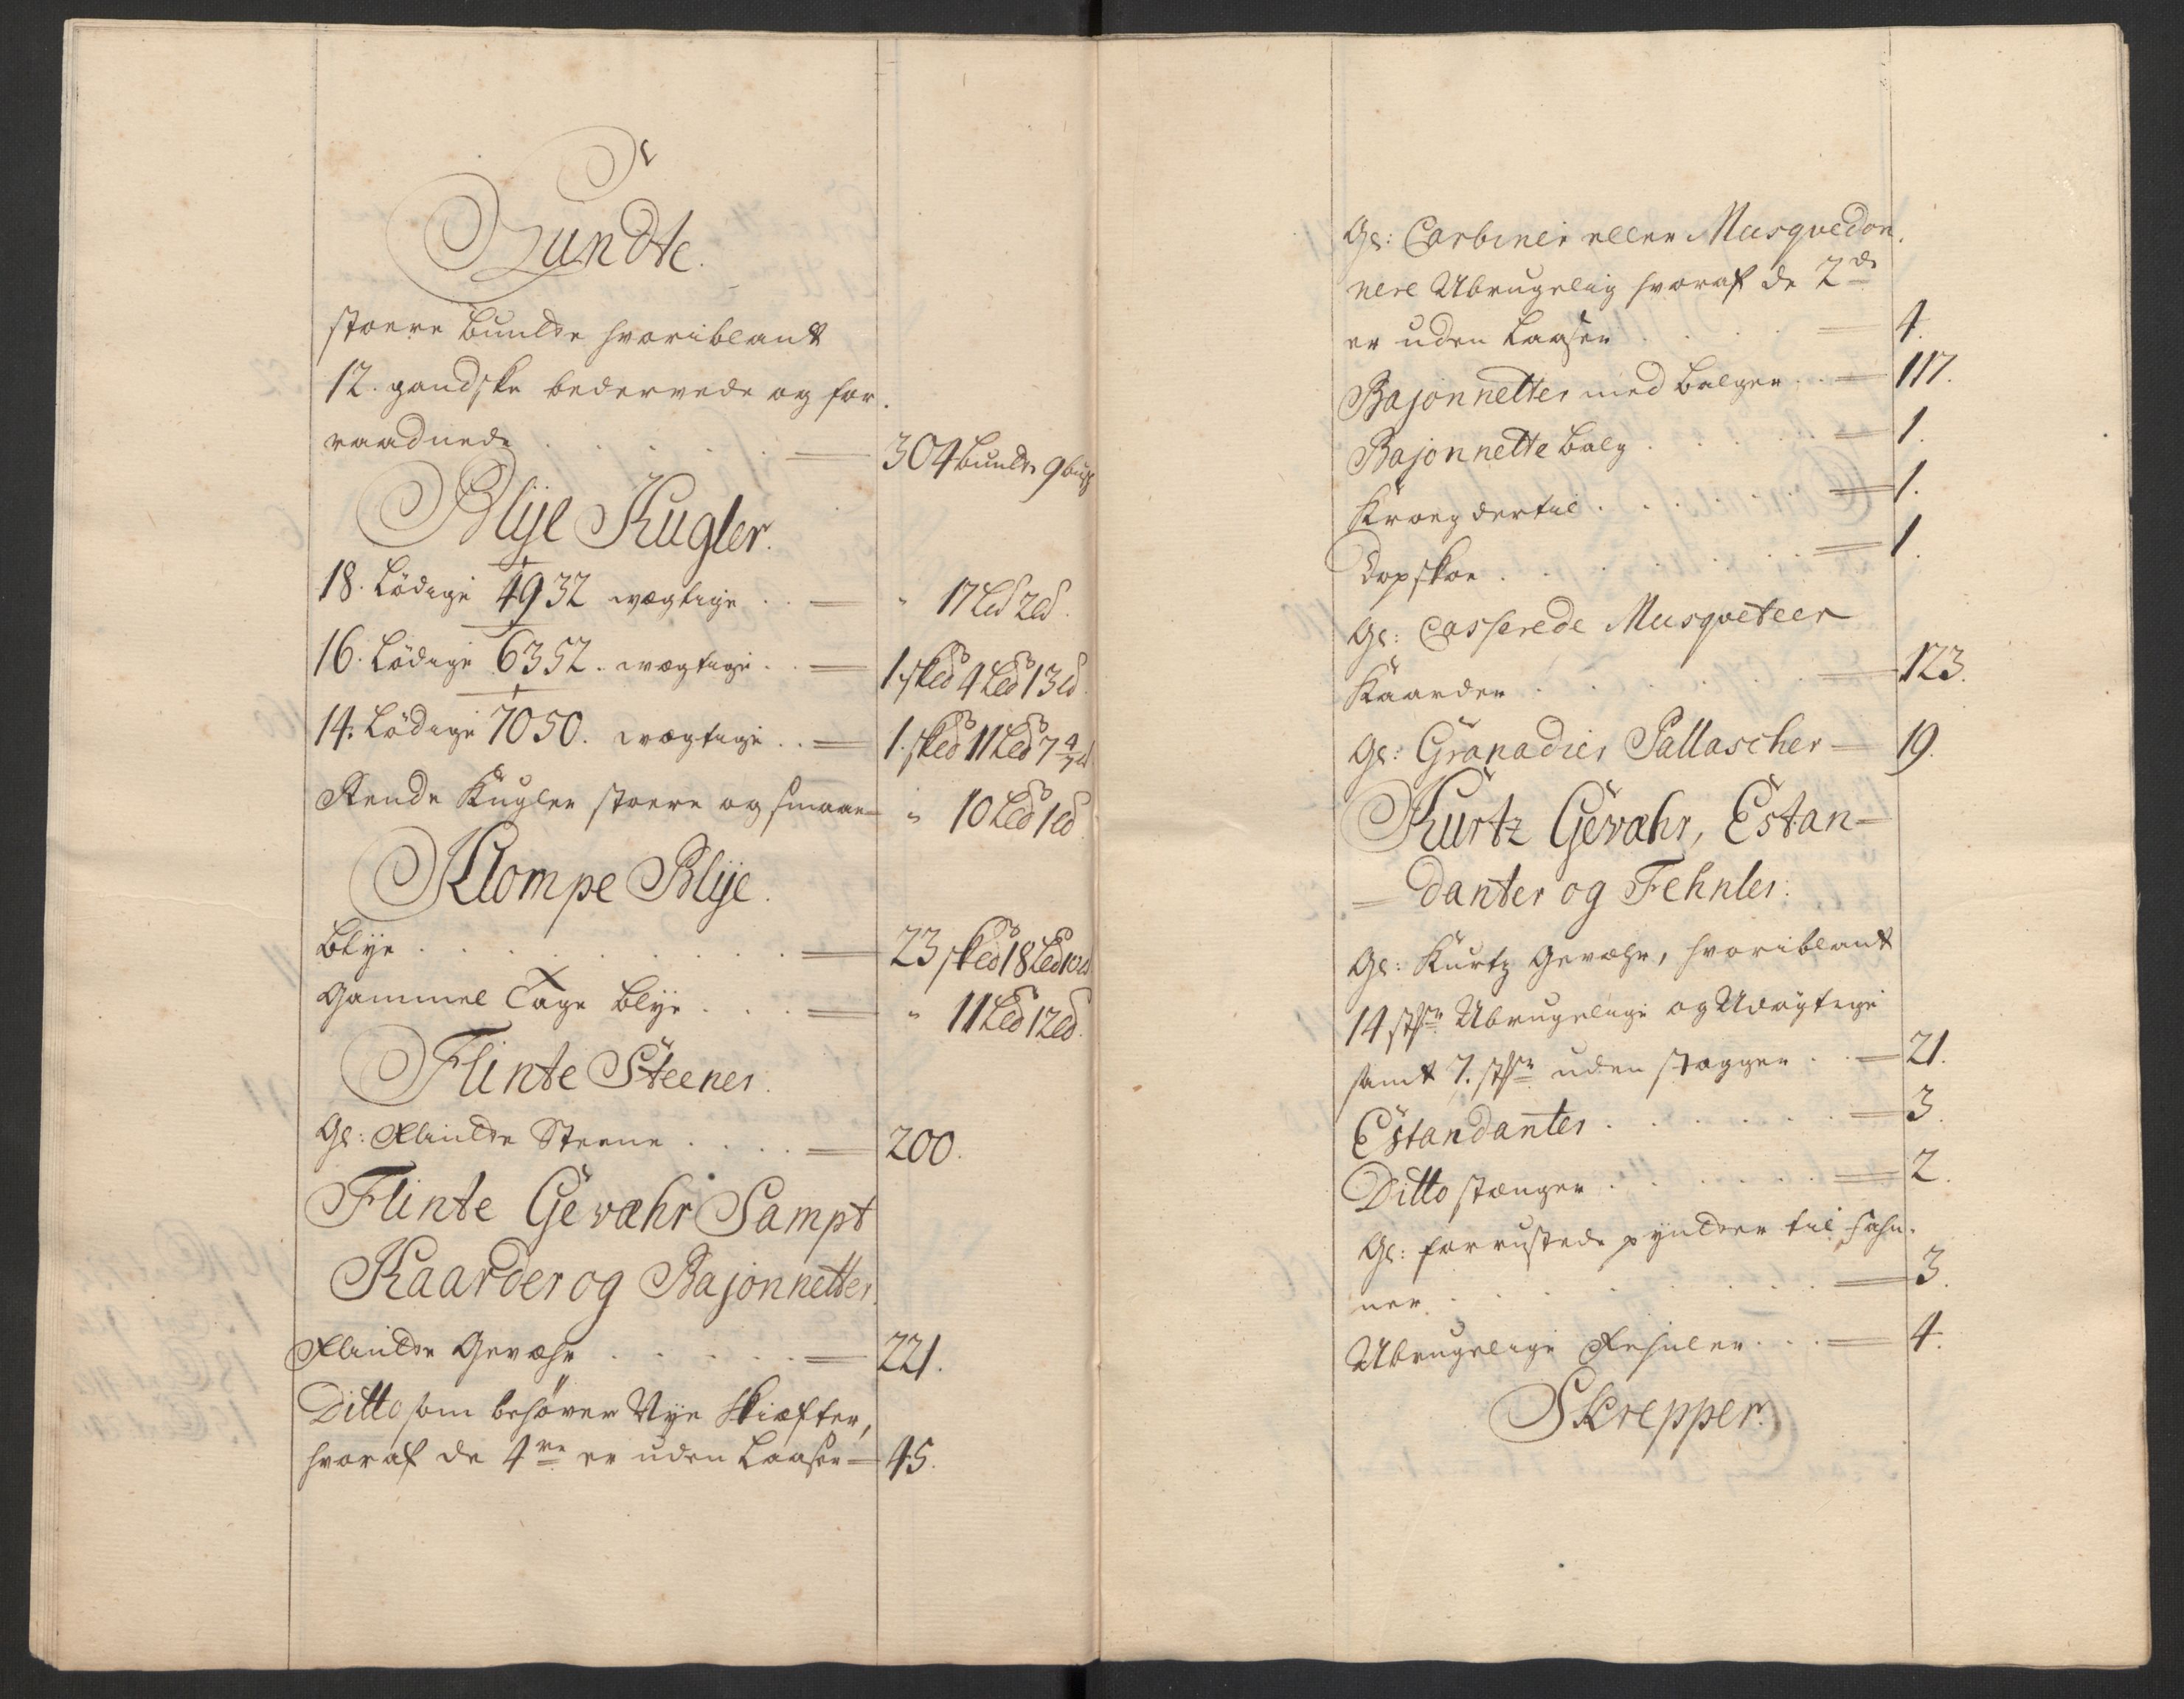 Lundte.
stoere bundte hvoriblant
12. gandske bedervede og for-
raadnede . . . . = 304 bundte 9 bugt
Blije Kugler.
18. Lödige 4932 vægtige . . = " 17 L℔ 2 ℔.
16. Lödige 6352. vægtige . . = 1. sk℔ 4 L℔ 13 ℔.
14. Lödige 7050. vægtige . . = 1. sk℔ 11 L℔ 7 4/7 ℔
Rende Kugler stoere og smaae = " 10 L℔ 1 ℔
Klompe Blije.
Blye . . . . . . = 23 sk℔ 18 L℔ 10 ℔
Gammel Tage Blye . . . = " 11 L℔ 12 ℔.
Flinte Steener.
Gl: Flindte Steene . . . = 200.
Flinte Gevæhr Sampt
Kaarder og Bajonnetter.
Flindte Gevæhr . . . . . = 221.
Ditto som behöver Nye Skiefter,
hvoraf de 4re er uden Laaser = 45.
Gl: Carbiner eller Musquedon-
nere Ubrugelig hvoraf de 2de
er uden Laaser . . . = 4.
Bajonnetter med balger . . = 117.
Bajonnette balg . . . . = 1.
Kroeg dertil . . . . = 1.
Dopskoe . . . . . = 1.
Gl: Casserede Musqueteer
Kaarder . . . . . = 123.
Gl: Granadier Pallascher = 19.
Kurtz Gevæhr, Estan-
= danter og Fehnler.
Gl: Kurtz Gevæhr, hvoriblant
14 stkr Ubrugelige og Udygtige
samt 7. stkr uden stagger . . = 21.
Estandanter . . . . . = 3.
Ditto stænger . . . . . = 2.
Gl: forrustede pyndter til fahn-
ner . . . . . . = 3.
Ubrugelige Fehnler . . . = 4.
Skrepper.